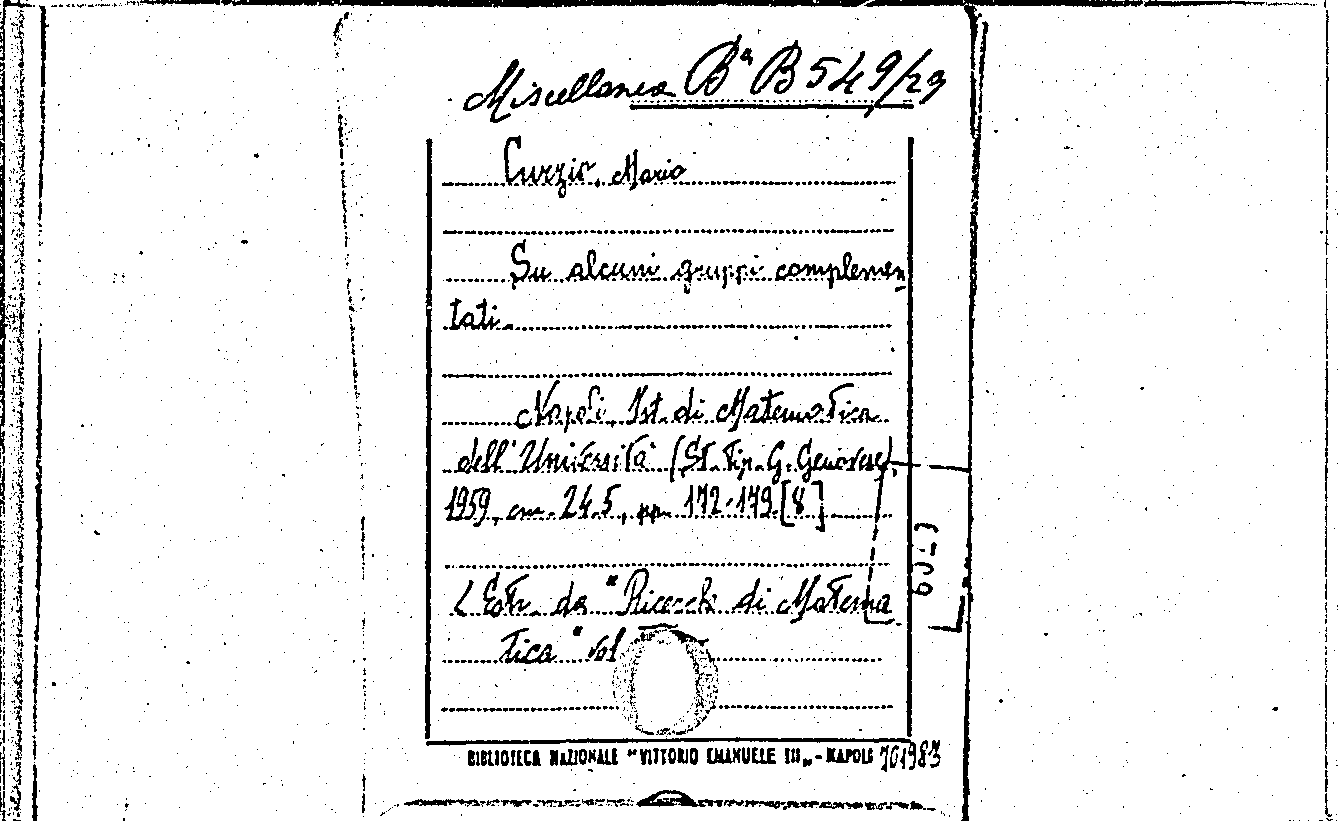 Miscellanea Bª B 549/29
Curzio, Mario
Su alcuni gruppi complemen
tati.
Napoli, Ist. di Matematica
dell'Università (St. Tip. G. Genovese),
1959, cm. 24.5, pp. 172-179 [8]
(Estr. da "Ricerche di Matema
tica" vol
BIBLIOTECA NAZIONALE "VITTORIO EMANUELE III" - NAPOLI 701983